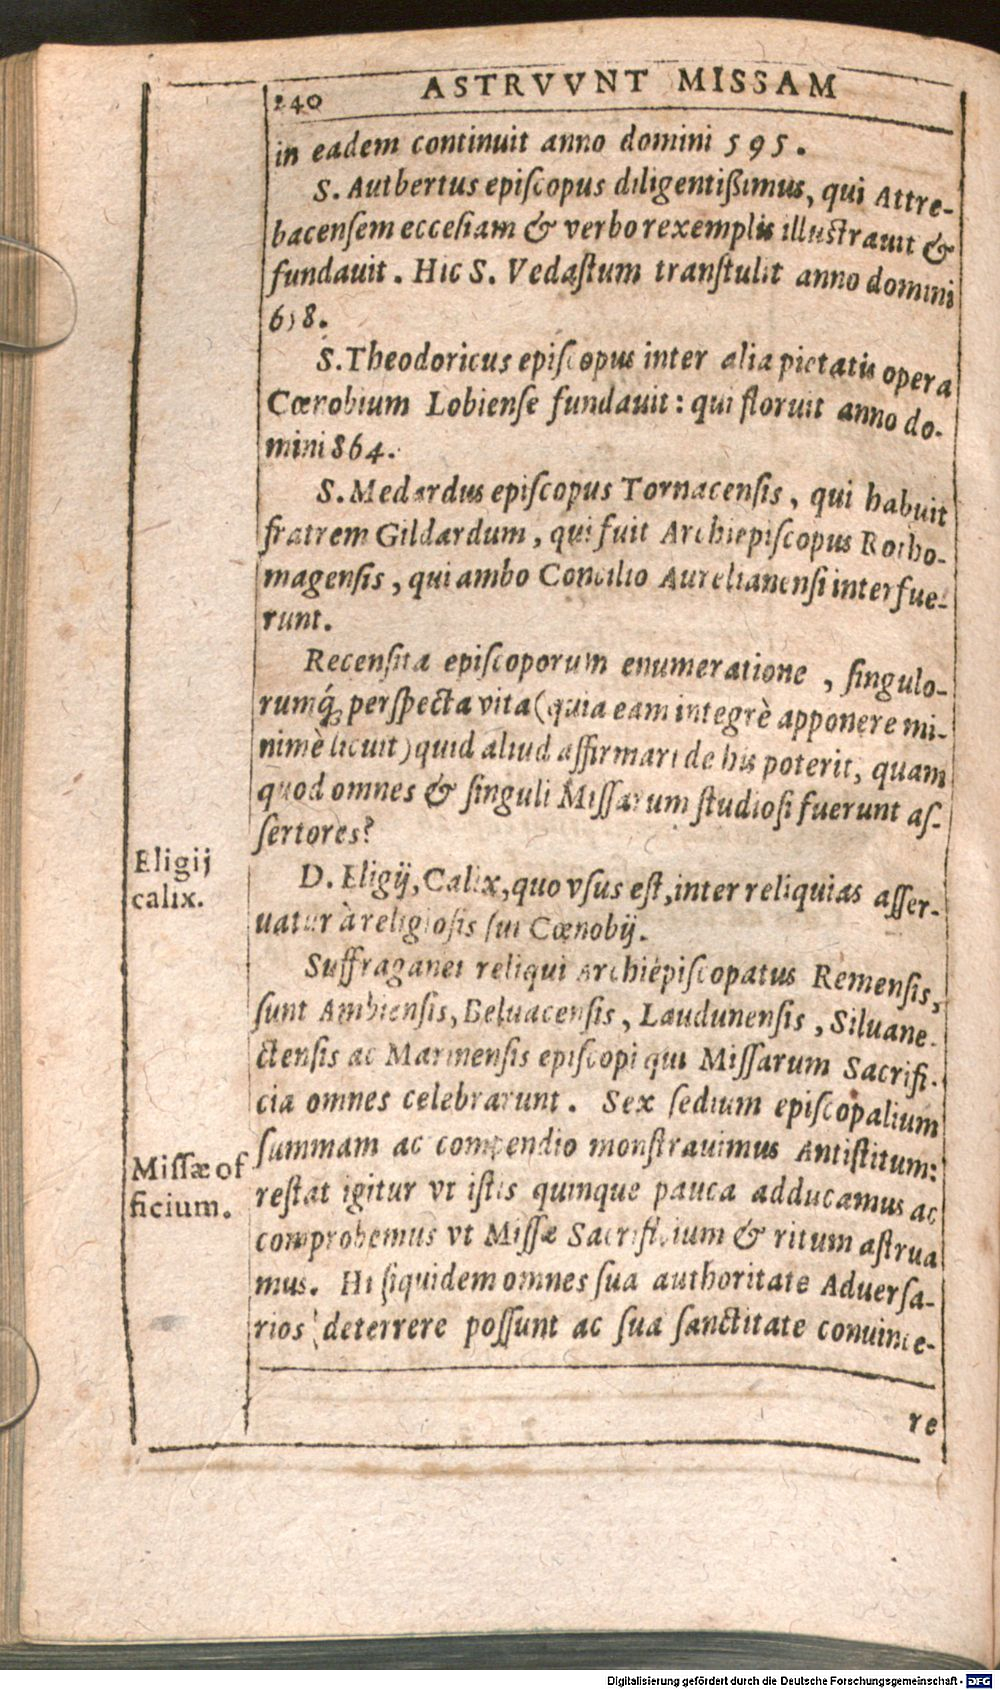 240 ASTRVVNT MISSAM
in eadem continuit anno domini 595.
S. Autbertus epiſcopus diligentißimus, qui Attre-
bacenſem eccesiam & verbo rexemplis illuſtrauit &
fundauit. Hic S. Vedaſtum tranſtulit anno domini
658.
S. Theodoricus epiſcopus inter alia pietatis opera
Cœnobium Lobienſe fundauit: qui floruit anno do-
mini 864.
S. Medardus epiſcopus Tornacenſis, qui habuit
fratrem Gildardum, qui fuit Archiepiſcopus Rotho-
magenſis, qui ambo Concilio Aurelianenſi interfue-
runt.
Recenſita epiſcoporum enumeratione, ſingulo-
rumq́; perſpecta vita (quia eam integrè apponere mi-
nimè licuit) quid aliud affirmari de his poterit, quam
quod omnes & ſinguli Miſſarum ſtudioſi fuerunt aſ-
ſertores?
Eligij
calix.
D. Eligij, Calix, quo vſus eſt, inter reliquias aſſer-
uatur à religioſis ſui Cœnobij.
Suffraganei reliqui Archiepiſcopatus Remenſis,
ſunt Ambienſis, Beluacenſis, Laudunenſis, Siluane-
ctenſis ac Marinensis epiſcopi qui Miſſarum Sacrifi-
cia omnes celebrarunt. Sex ſedium epiſcopalium
ſummam ac compendio monſtrauimus Antiſtitum:
Miſſæ of
ficium.
reſtat igitur vt iſtis quinque pauca adducamus ac
comprobemus vt Miſſæ Sacrificium & ritum aſtrua
mus. Hi ſiquidem omnes ſua authoritate Aduerſa-
rios deterrere poſſunt ac ſua ſanctitate conuince-
re
Digitalisierung gefördert durch die Deutsche Forschungsgemeinschaft - DFG